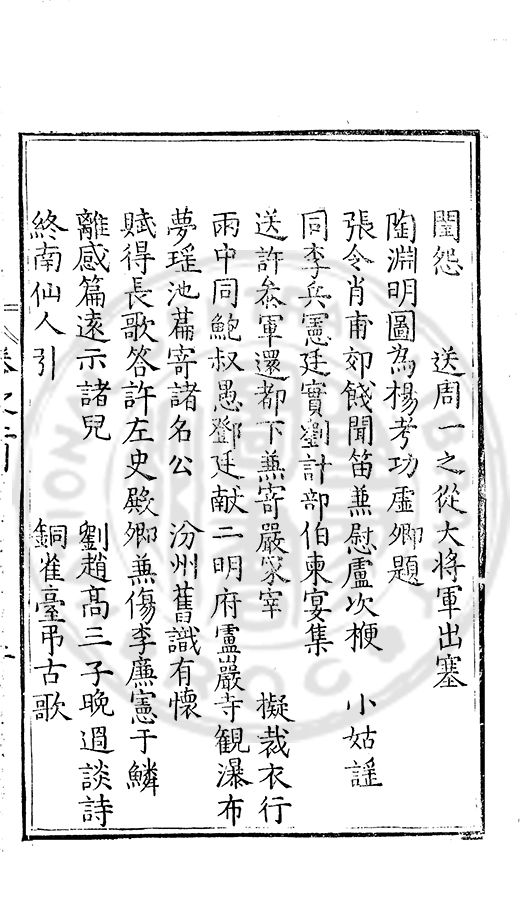 閨怨　送周一之從大將軍出塞
陶淵明圖為楊考功虛卿題
張令肖甫郊餞聞笛兼慰盧次楩　小姑謡
同李兵憲廷實劉計部伯東宴集
送許叅軍還都下兼寄嚴冢宰　擬裁衣行
雨中同鮑叔愚鄧廷献二明府靈巖寺觀瀑布
夢瑶池篇寄諸名公　汾州舊識有懷
賦得長歌答許左史殿卿兼傷李廉憲于鱗
離感篇遠示諸兒　劉趙髙三子晚過談詩
終南仙人引　銅雀臺弔古歌